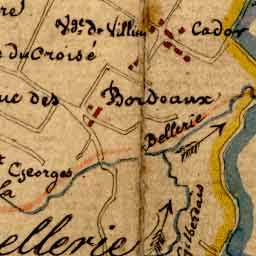 Vge. de Villiu
Cador
du Croisé
ue des Bordeaux
Bellerie
t Georges
la
ellerie
Gilberdais